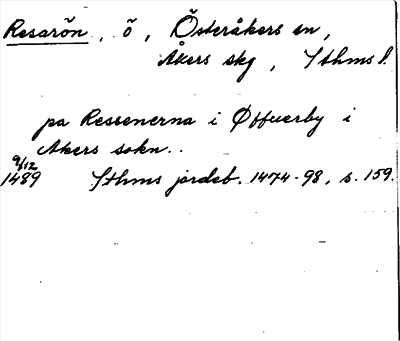 Resarön, ö, Österåkers sn,
Åkers skg, Sthms l.
pa Ressenerna i Øffuerby i
Akers sokn.
9/12
1489 Sthms jordeb. 1474-98, s. 159.